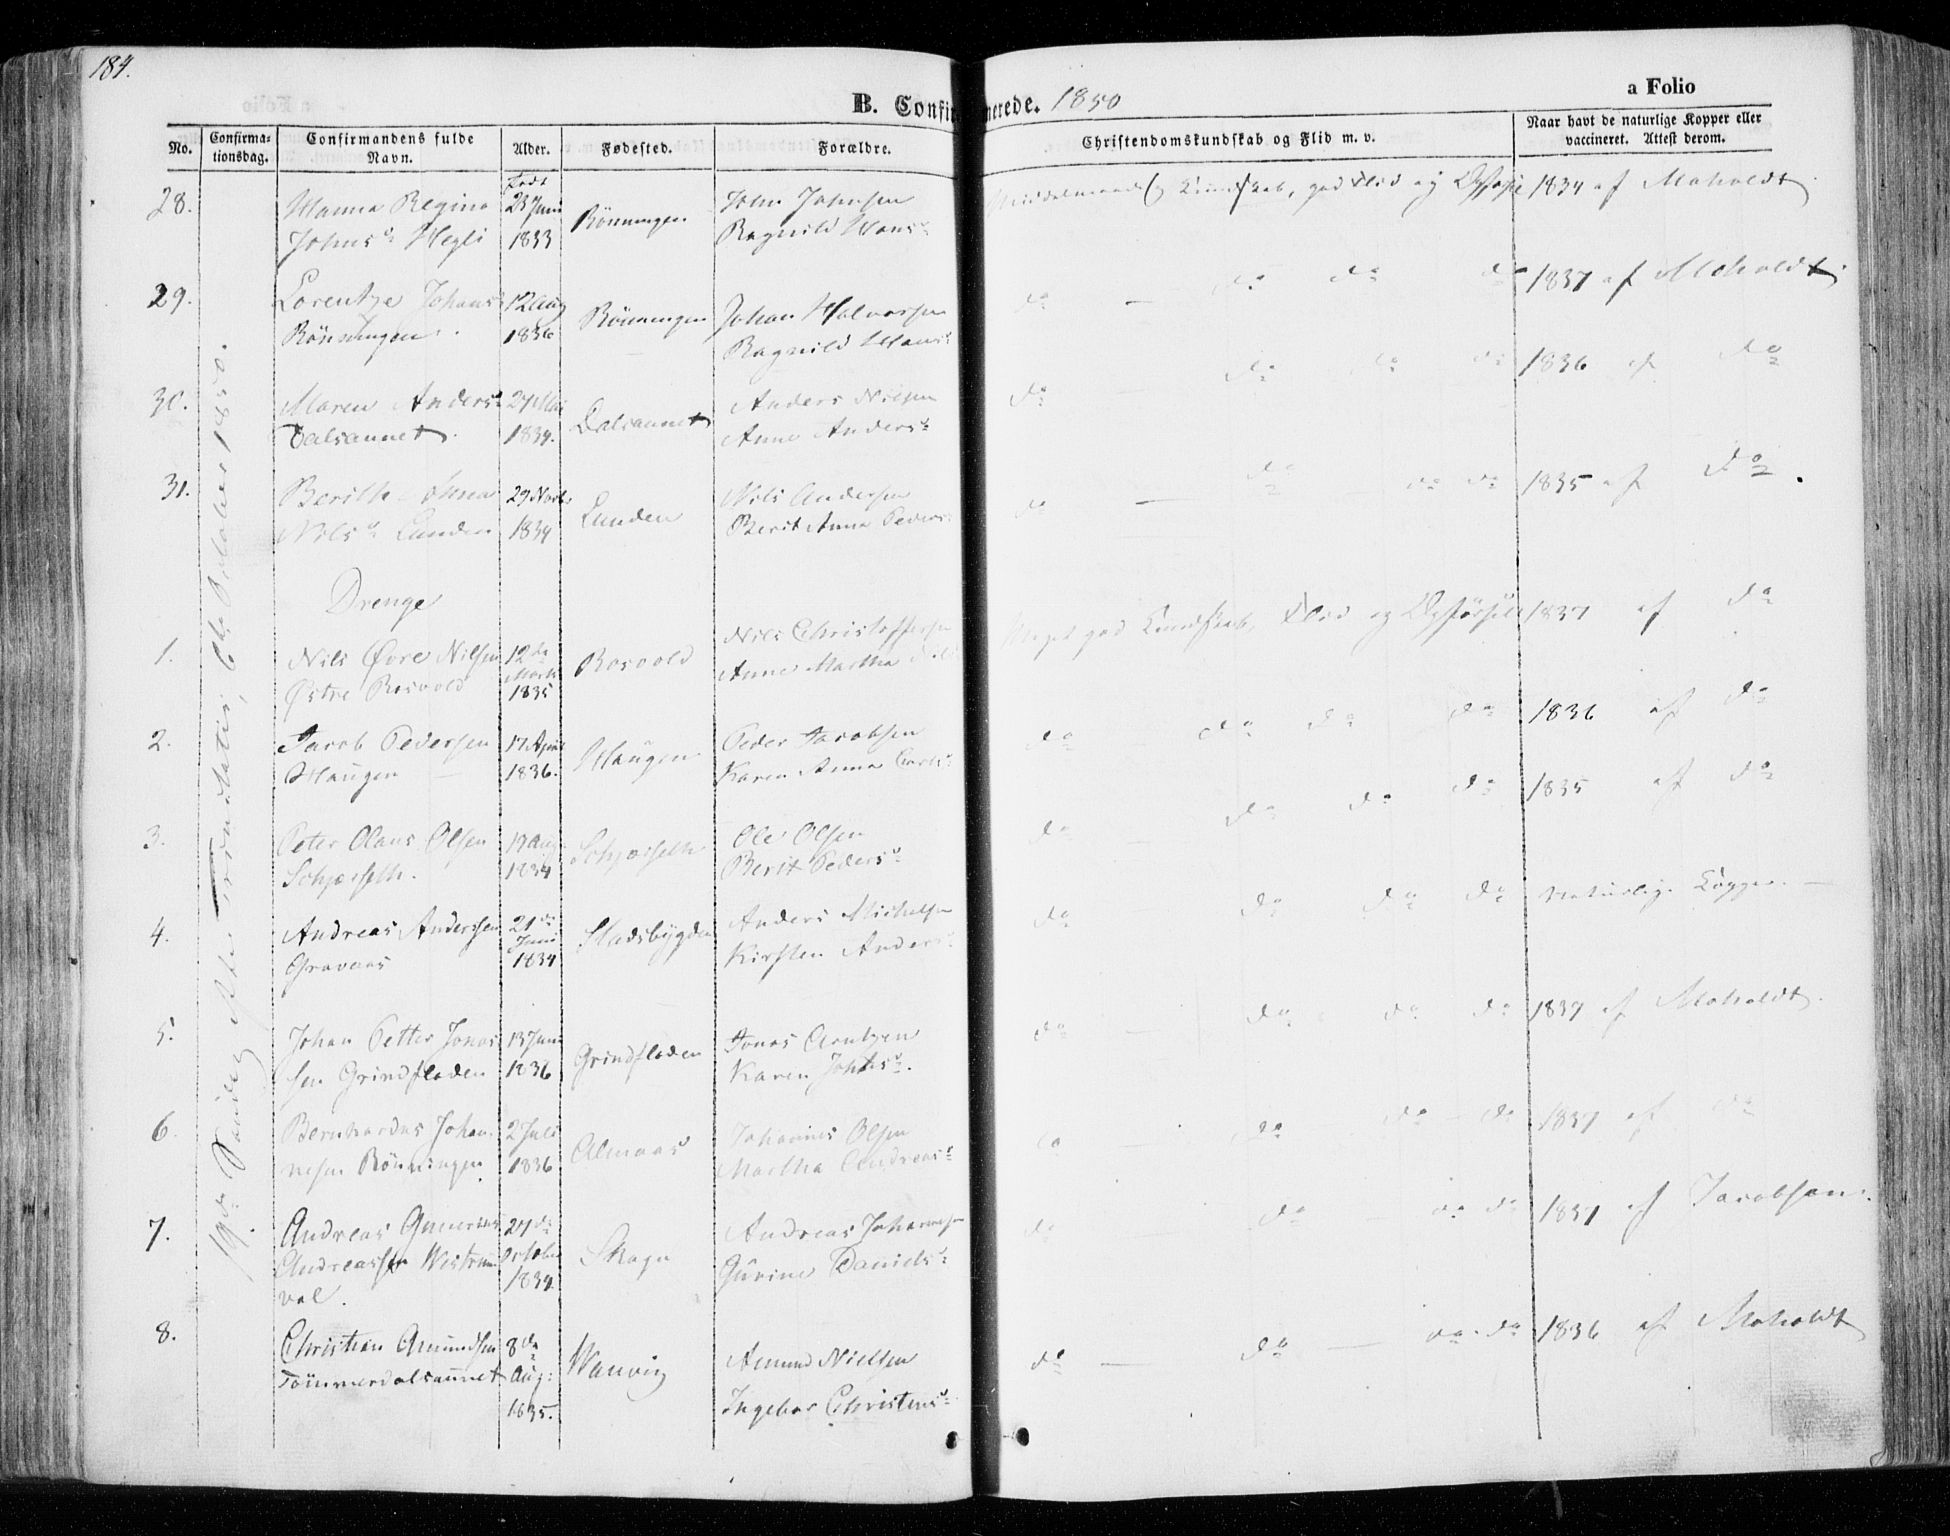 184.
B. Confirmerede. 1850
a Folio
No.
Confirma-
tionsdag.
Confirmandens fulde
Navn.
Alder.
Fødested.
Forældre.
Christendomskundskab og Flid m. v.
Naar havt de naturlige Kopper eller
vaccineret. Attest derom.
19de Søndag efter Trinitatis, 6te October 1850.
28. Hanna Regina født 23 Juni Rönningen John Johnsen Middelmaadig Kundskab, god Flid og Opførsel 1834 af Moholdt
Johnsd. Hegli 1833 Ragnild Hansd.
29. Lorentze Johansd. 12 Aug Rönningen Johan Halvorsen do — do do do 1837 af Moholdt
Rönningen. 1836 Ragnild Hansd.
30. Maren Andersd. 27 Mai Dalsaunet Anders Nilsen do do do do 1836 af do
Dalsaunet. 1834. Anne Andersd.
31. Berith Anna 29 Novb. Lunden Nils Andersen do — do do do 1835 af do.
Nilsd. Lunden 1834 Berit Anna Pedersd.
Drenge
1. Nils Øvre Nilsen 12te Rosvold Nils Christoffersen Meget god Kundskab, Flid og Opførsel 1837 af do
Østre Rosvold Marts 1835 Anne Martha
2. Jacob Pedersen 17 April Haugen Peder Jacobsen do do do do 1836 af do
Haugen — 1836. Karen Anna
3. Peter Olaus Olsen 19 Aug Schjærseth Ole Olsen do do do do 1835 af do
Schjærseth. 1834 Berit Pedersd.
4. Andreas Anderssen 21de Stadsbygden Anders Michelsen do do do do Naturlige Kopper. —
Gravaas Juni 1834 Kirsten Andersd.
5. Johan Petter Jonas- 13 Juni Grindfladen Jonas Arntzen do — do do do 1837 af Moholdt.
sen Grindfladen 1836 Karen Johnsd.
6. Bernhardus Johan- 2 Juli Almaas Johannes Olsen do — do do do 1837 af do
nesen Rönningen 1836 Martha Andreasd.
7. Andreas 27de Skogn Andreas Johannesen do do do do 1837 af Jacobsen.
Andreassen October 1834 Gurine Danielsd.
val.
8. Christian Amundsen 8de Wanvig Amund Nielsen do — do — do. do 1836 af Moholdt
Tömmerdalsaunet Aug: 1835. Ingebor Christensd.